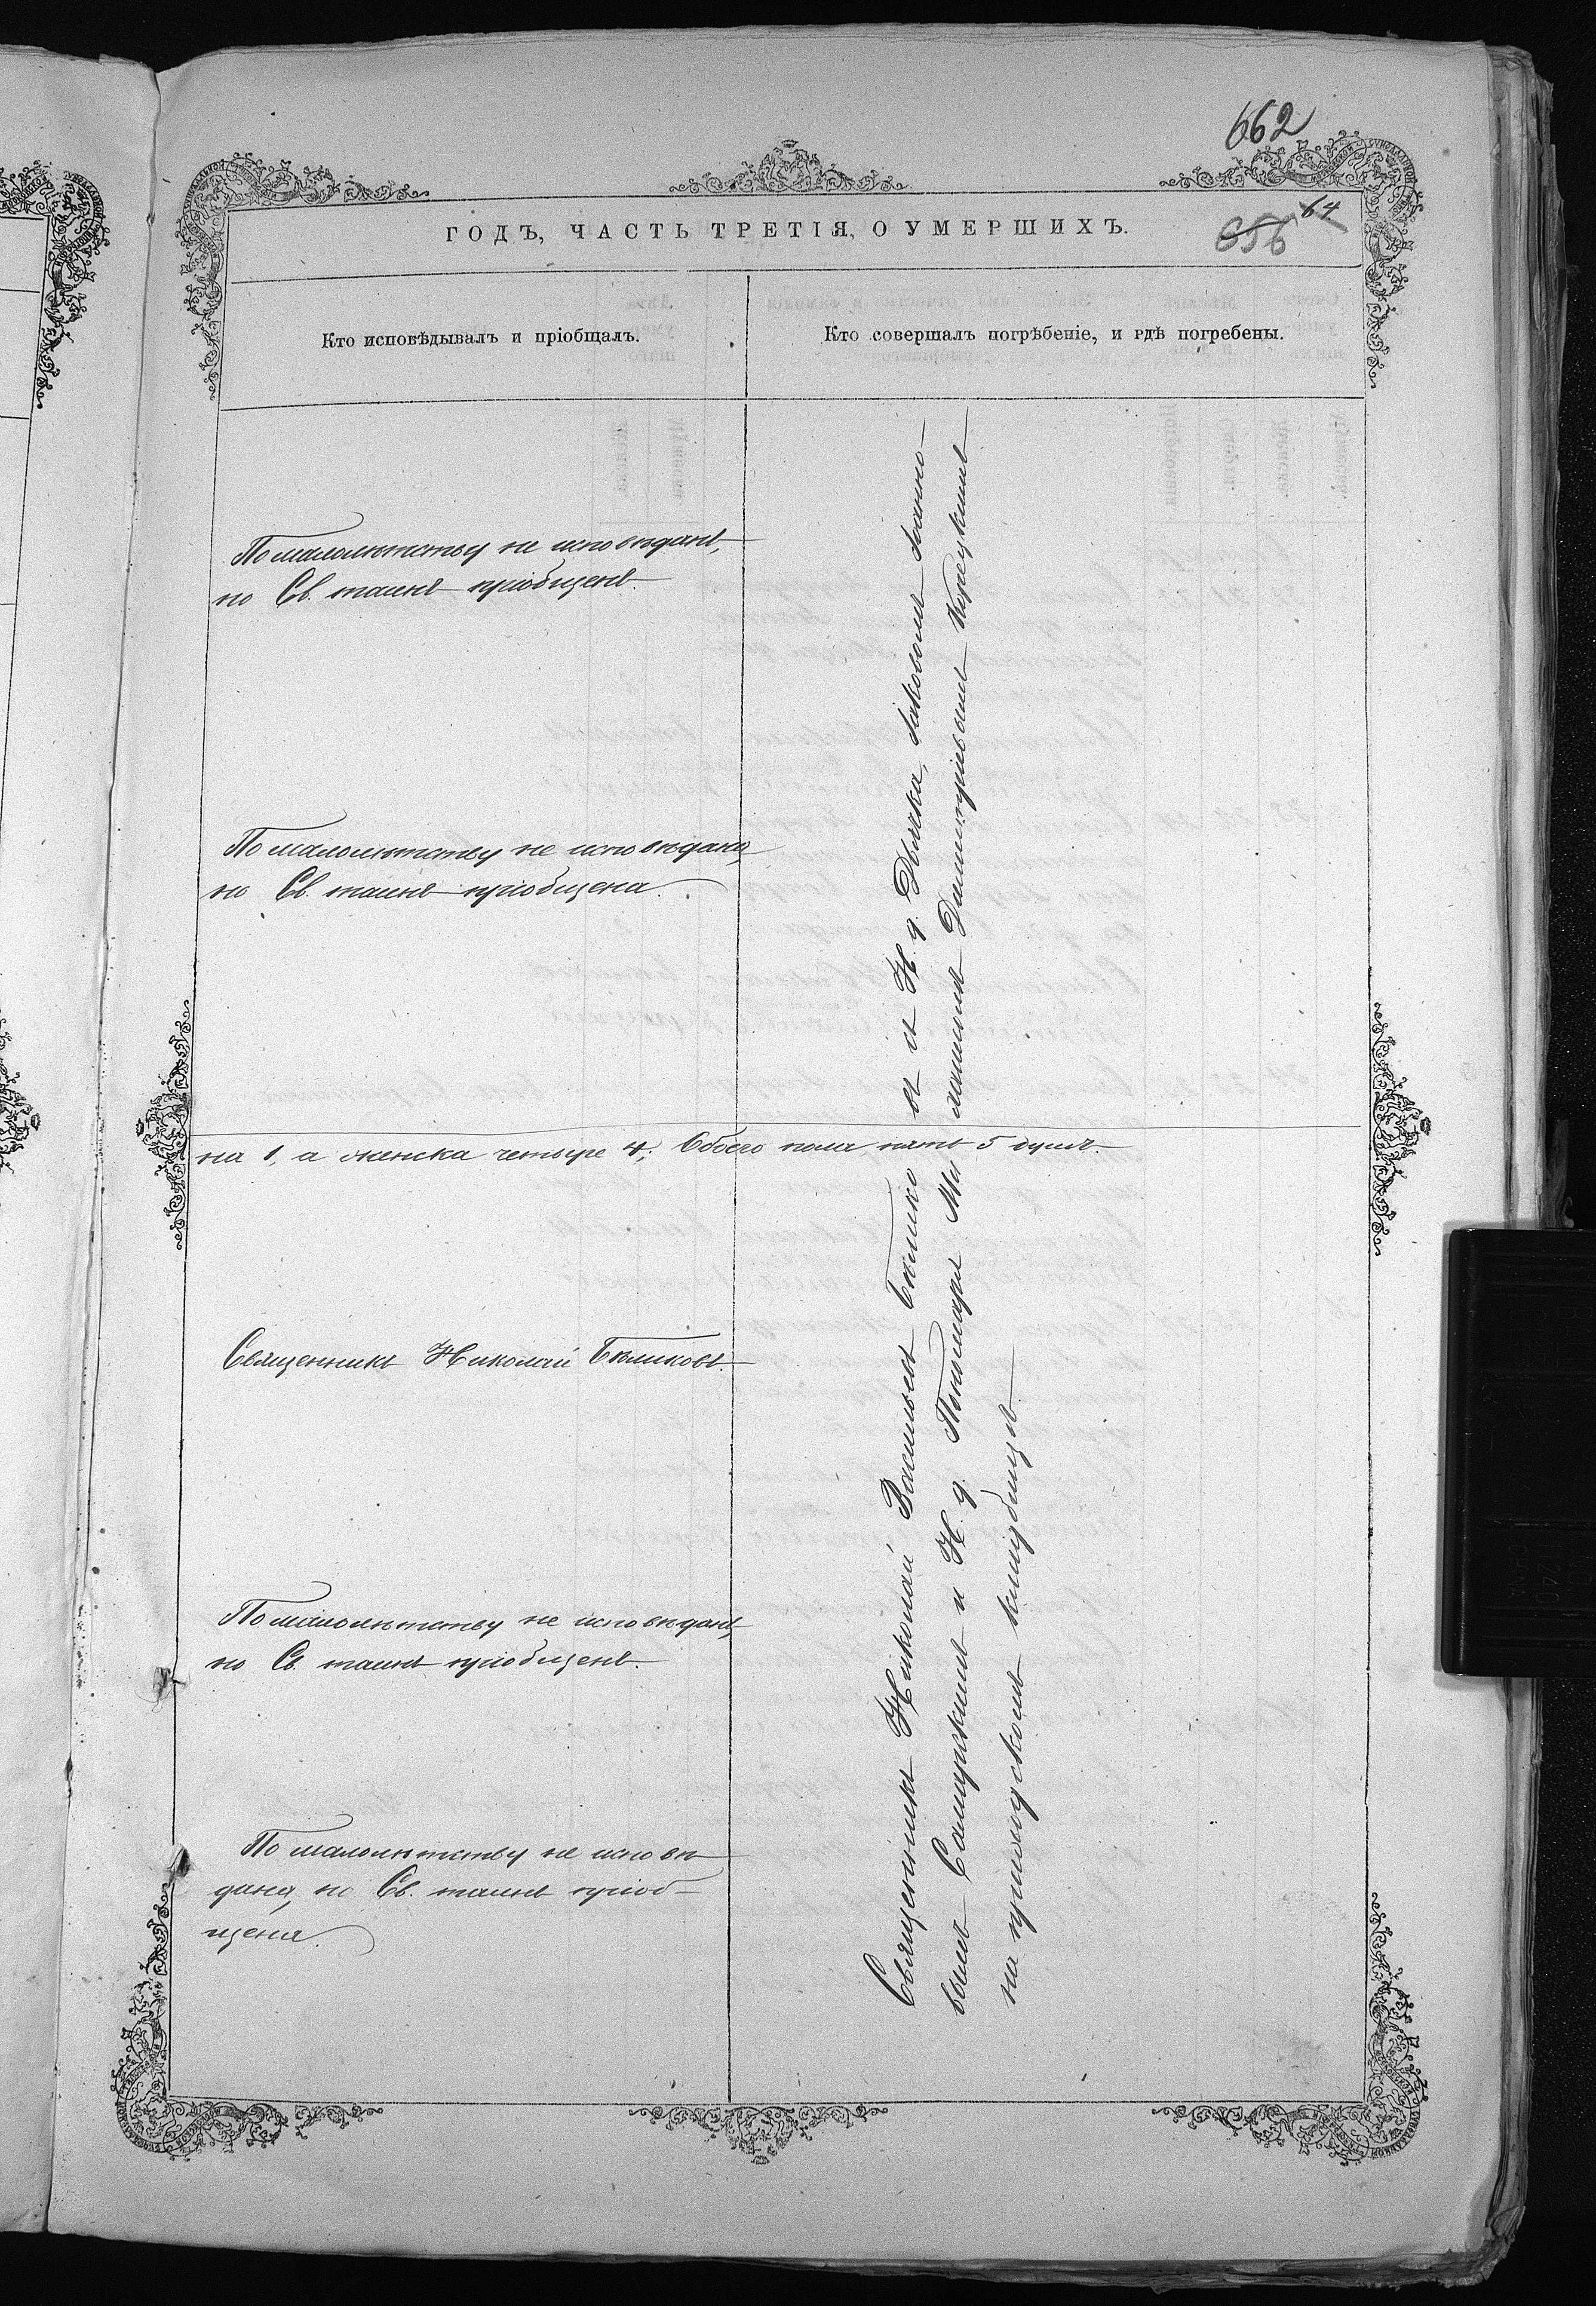 662
64
656
ГОДЪ, ЧАСТЬ ТРЕТІЯ, О УМЕРШИХЪ.
Кто исповѣдывалъ и пріобщалъ.
Кто совершалъ погрѣбеніе, и гдѣ погребены.
По малолѣтству не исповѣданъ,
но Св. таинъ пріобщенъ.
По малолѣтству не исповѣдана,
но Св. таинъ пріобщена.
на 1, а женска четыре 4; Обоего пола пять 5 душъ.
Священникъ Николай Бѣликовъ.
По малолѣтству не исповѣданъ,
но Св. таинъ пріобщенъ.
По малолѣтству не исповѣ
дана, но Св. таинъ пріоб-
щена.
Священникъ Николай Васильевъ Бѣлико въ съ И. д. Дьячка, Іаковомъ Іоанно-
вымъ Самарскимъ и И. д. Пономаря Ми хаиломъ Димитріевымъ
на приходскомъ кладбищѣ